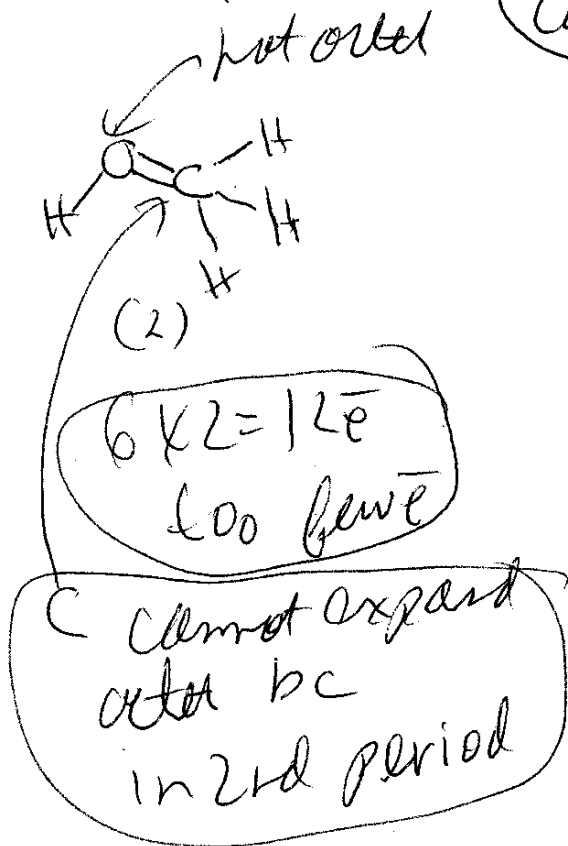 not octet
O
C
H
H
H
H
(2)
6 x 2 = 12ē
too few ē
C cannot expand
octet bc
in 2nd period